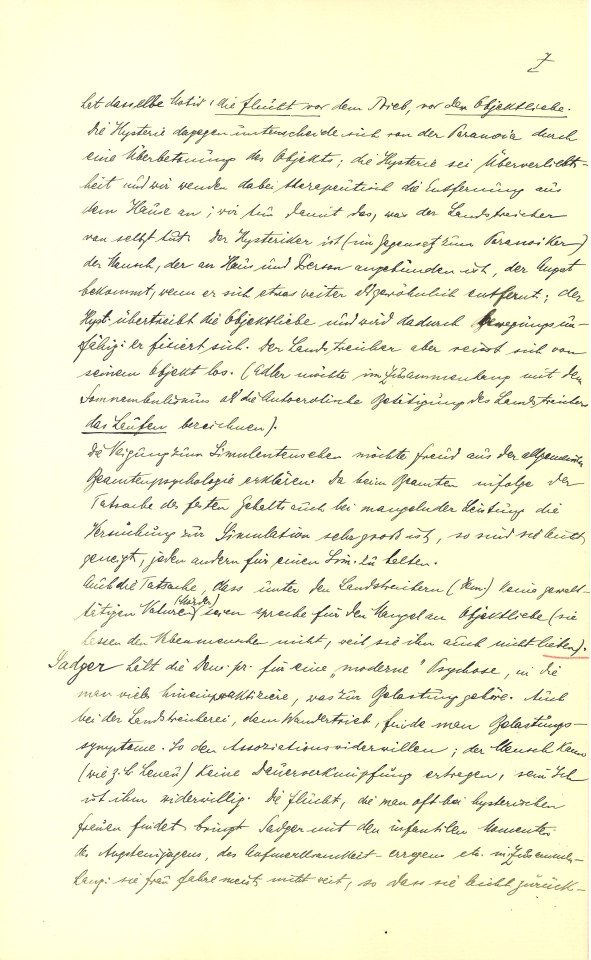 7
hat dasselbe Motiv: die Flucht vor dem Trieb, vor der Objektliebe.
Die Hysterie dagegen unterscheide sich von der Paranoia durch
eine Überbetonung des Objekts; die Hysterie sei Überverliebt-
heit und wir wenden dabei therapeutisch die Entfernung aus
dem Hause an; wir tun damit das, was der Landstreicher
von selbst tut. Der Hysteriker ist (im Gegensatz zum Paranoiker)
der Mensch, der an Haus und Person angebunden ist, der Angst
bekommt, wenn er sich etwas weiter als gewöhnlich entfernt; der
Hyst. übertreibt die Objektliebe und wird dadurch bewegungsun-
fähig: er fixiert sich. Der Landstreicher aber reisst sich von
seinem Objekt los. (Adler möchte im Zusammenhang mit dem
Somnambulismus als die autoerotische Betätigung des Landstreichers
das Laufen bezeichnen).
Die Neigung zum Simulantensehen möchte Freud aus der allgemeinen
Beamtenpsychologie erklären. Da beim Beamten infolge der
Tatsache des festen Gehalts auch bei mangelnder Leistung die
Versuchung zur Simulation sehr gross ist, so sind sie leicht
geneigt, jeden andern für einen Sim. zu halten.
Auch die Tatsache, dass unter den Landstreichern (Dem.) keine gewalt-
tätigen Naturen (Mörder) seien spreche für den Mangel an Objektliebe (sie
hassen den Nebenmenschen nicht, weil sie ihn auch nicht lieben).
Sadger hält die Dem. pr. für eine „moderne" Psychose, in die
man vieles hineinpraktiziere, was zur Belastung gehöre. Auch
bei der Landstreicherei, dem Wandertrieb, finde man Belastungs-
symptome. So den Assoziationswiderwillen; der Mensch kann
(wie z.B. Lenau) keine Dauerverknüpfung ertragen, sein Ich
ist ihm widerwillig. Die Flucht, die man oft bei hysterischen
Frauen findet bringt Sadger mit den infantilen Momenten
des Angsteinjagens, des Aufmerksamkeit-erregens etc. in Zusammen-
hang: sie fahre meist nicht weit, so dass sie leicht zurück-